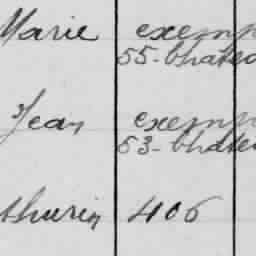 Marie exemp
55-bhateau
Jean exemp
53-bhateau
thurin 406